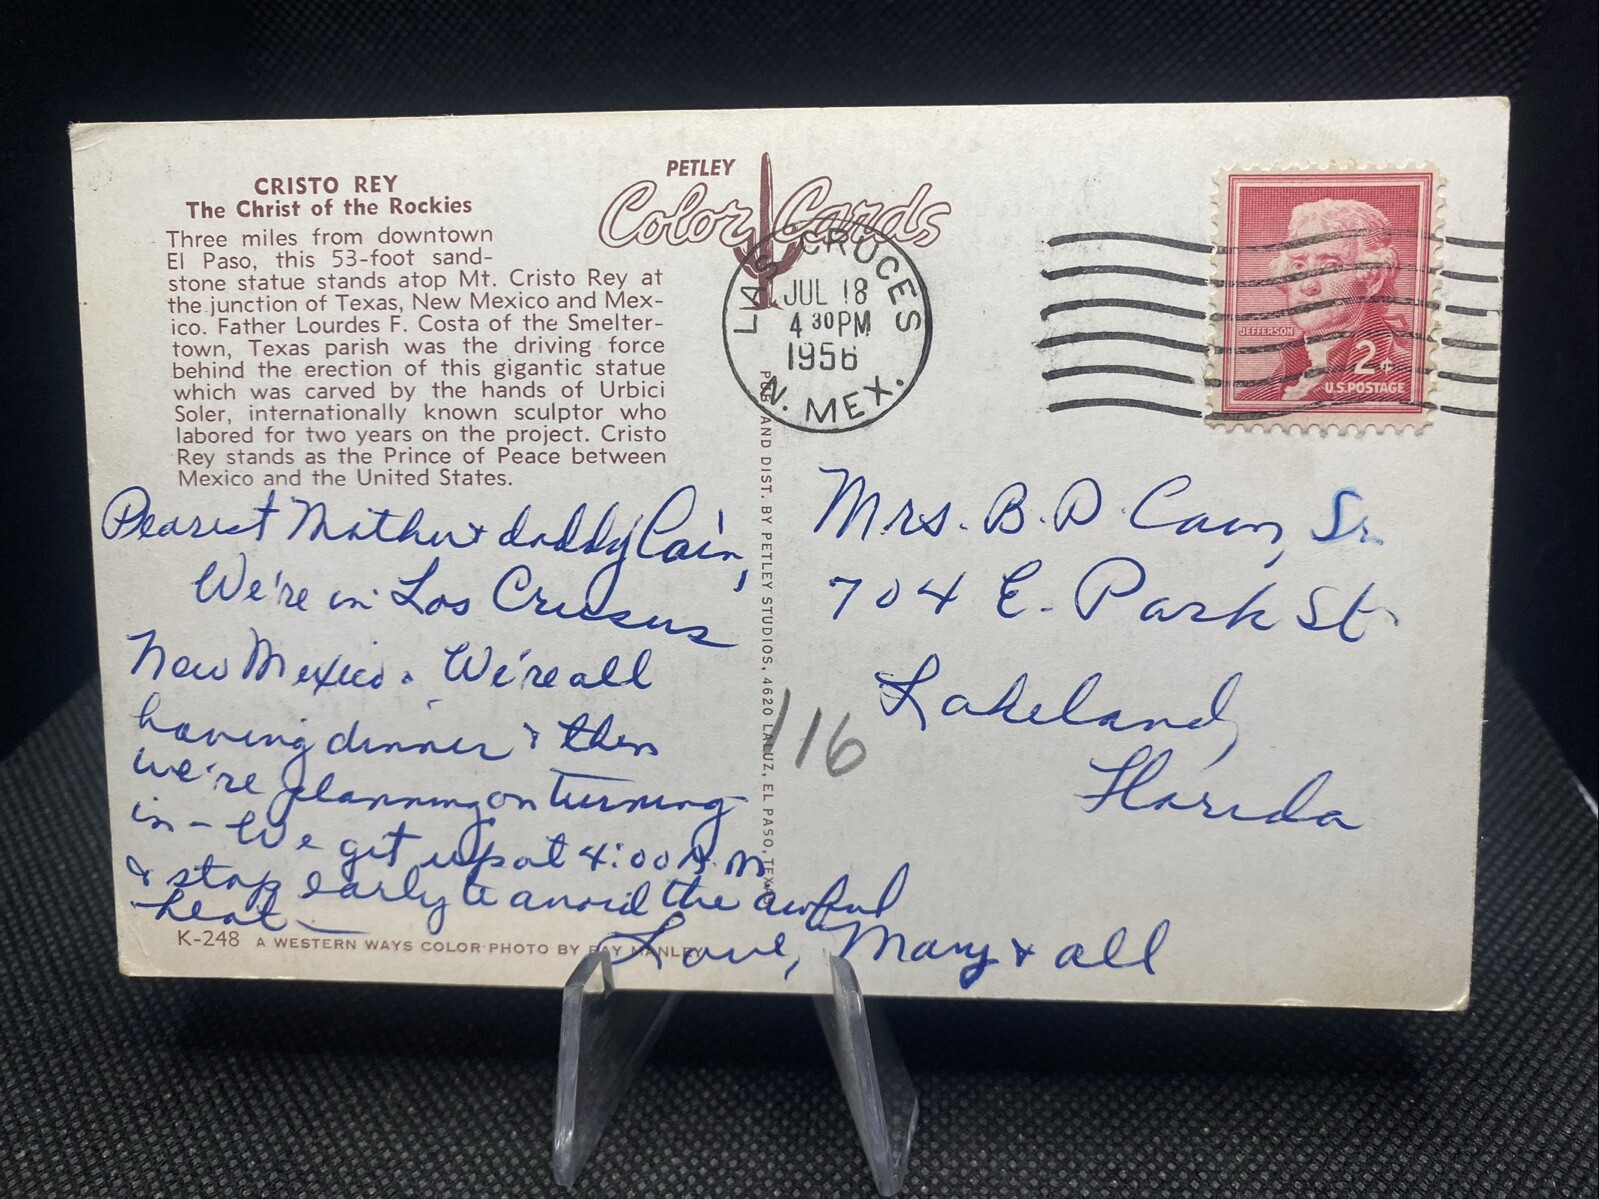 CRISTO REY
The Christ of the Rockies
Three miles from downtown
El Paso, this 53-foot sand-
stone statue stands atop Mt. Cristo Rey at
the junction of Texas, New Mexico and Mex-
ico. Father Lourdes F. Costa of the Smelter-
town, Texas parish was the driving force
behind the erection of this gigantic statue
which was carved by the hands of Urbici
Soler, internationally known sculptor who
labored for two years on the project. Cristo
Rey stands as the Prince of Peace between
Mexico and the United States.
Dearest Mother & daddy Cain,
We're in Los Crusus
New Mexico. We're all
having dinner & then
we're planning on turning
in - We get up at 4:00 A.M
& stop early to avoid the awful
heat —
Love, Mary & all
K-248 A WESTERN WAYS COLOR PHOTO BY RAY MANLEY
PETLEY
Color Cards
PUB. AND DIST. BY PETLEY STUDIOS, 4620 LALUZ, EL PASO, TEXAS
LAS CRUCES
JUL 18
4 30 PM
1956
N. MEX.
JEFFERSON
2¢
U.S. POSTAGE
Mrs. B. D. Cain, Sr.
704 E. Park St.
Lakeland,
Florida
116